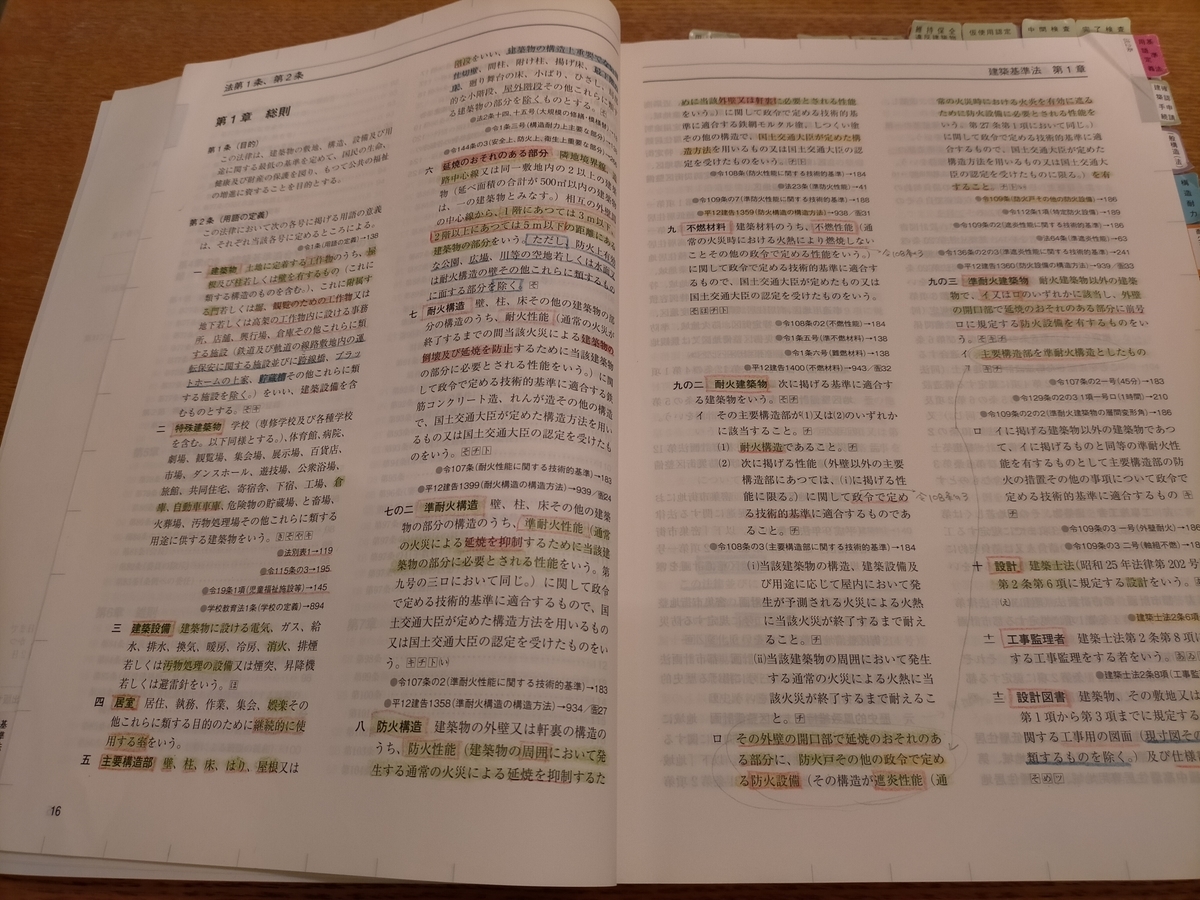 法第1条、第2条
第1章 総則
第1条 (目的)
この法律は、建築物の敷地、構造、設備及び用
途に関する最低の基準を定めて、国民の生命、
健康及び財産の保護を図り、もつて公共の福祉
の増進に資することを目的とする。
第2条 (用語の定義)
この法律において次の各号に掲げる用語の意義
は、それぞれ当該各号に定めるところによる。
●令1条(用語の定義)→138
一 建築物 土地に定着する工作物のうち、屋
根及び柱若しくは壁を有するもの(これに
類する構造のものを含む。)、これに附属す
る門若しくは塀、観覧のための工作物又は
地下若しくは高架の工作物内に設ける事務
所、店舗、興行場、倉庫その他これらに類
する施設(鉄道及び軌道の線路敷地内の運
転保安に関する施設並びに跨線橋、プラッ
トホームの上家、貯蔵槽その他これらに類
する施設を除く。)をいい、建築設備を含
むものとする。
二 特殊建築物 学校(専修学校及び各種学校
を含む。以下同様とする。)、体育館、病院、
劇場、観覧場、集会場、展示場、百貨店、
市場、ダンスホール、遊技場、公衆浴場、
旅館、共同住宅、寄宿舎、下宿、工場、倉
庫、自動車車庫、危険物の貯蔵場、と畜場、
火葬場、汚物処理場その他これらに類する
用途に供する建築物をいう。
●法別表1→119
●令115条の3→195
●令19条1項(児童福祉施設等)→145
●学校教育法1条(学校の定義)→894
三 建築設備 建築物に設ける電気、ガス、給
水、排水、換気、暖房、冷房、消火、排煙
若しくは汚物処理の設備又は煙突、昇降機
若しくは避雷針をいう。
四 居室 居住、執務、作業、集会、娯楽その
他これらに類する目的のために継続的に使
用する室をいう。
五 主要構造部 壁、柱、床、はり、屋根又は
16
階段をいい、建築物の構造上重要でない
間柱、付け柱、揚げ床、
廻り舞台の床、小ばり、ひさし、
的な小階段、屋外階段その他これらに類
る建築物の部分を除くものとする。
●法2条十四、十五号(大規模の修繕・模様替)
●令1条三号(構造耐力上主要な部分)
●令144条の3(安全上、防火上・衛生上重要な部分)
六 延焼のおそれのある部分 隣地境界線、
路中心線又は同一敷地内の2以上の建築
物(延べ面積の合計が500㎡以内の建築物
は、一の建築物とみなす。)相互の外壁間
の中心線から、1階にあつては3m以下、
2階以上にあつては5m以下の距離にある
建築物の部分をいう。ただし、防火上有効
な公園、広場、川等の空地若しくは水面又
は耐火構造の壁その他これらに類するもの
に面する部分を除く。
七 耐火構造 壁、柱、床その他の建築物の部
分の構造のうち、耐火性能(通常の火災が
終了するまでの間当該火災による建築物の
倒壊及び延焼を防止するために当該建築物
の部分に必要とされる性能をいう。)に関
して政令で定める技術的基準に適合する鉄
筋コンクリート造、れんが造その他の構造
で、国土交通大臣が定めた構造方法を用い
るもの又は国土交通大臣の認定を受けたも
のをいう。
●令107条(耐火性能に関する技術的基準)→183
●平12建告1399(耐火構造の構造方法)→939/図24
七の二 準耐火構造 壁、柱、床その他の建築
物の部分の構造のうち、準耐火性能(通常
の火災による延焼を抑制するために当該建
築物の部分に必要とされる性能をいう。第
九号の三ロにおいて同じ。)に関して政令
で定める技術的基準に適合するもので、国
土交通大臣が定めた構造方法を用いるもの
又は国土交通大臣の認定を受けたものをい
う。
●令107条の2(準耐火性能に関する技術的基準)→183
●平12建告1358(準耐火構造の構造方法)→934/図27
八 防火構造 建築物の外壁又は軒裏の構造の
うち、防火性能(建築物の周囲において発
生する通常の火災による延焼を抑制するた
建築基準法 第1章
めに当該外壁又は軒裏に必要とされる性能
をいう。)に関して政令で定める技術的基
準に適合する鉄網モルタル塗、しつくい塗
その他の構造で、国土交通大臣が定めた構
造方法を用いるもの又は国土交通大臣の認
定を受けたものをいう。
●令108条(防火性能に関する技術的基準)→184
●法23条(準防火性能)→41
●令109条の7(準防火性能に関する技術的基準)→188
●平12建告1359(防火構造の構造方法)→938/図31
九 不燃材料 建築材料のうち、不燃性能(通
常の火災時における火熱により燃焼しない
ことその他の政令で定める性能をいう。)
に関して政令で定める技術的基準に適合す
るもので、国土交通大臣が定めたもの又は
国土交通大臣の認定を受けたものをいう。
●令108条の2(不燃性能)→184
●令1条五号(準不燃材料)→138
●令1条六号(難燃材料)→138
●平12建告1400(不燃材料)→943/図32
九の二 耐火建築物 次に掲げる基準に適合す
る建築物をいう。
イ その主要構造部が(1)又は(2)のいずれか
に該当すること。
(1) 耐火構造であること。
(2) 次に掲げる性能(外壁以外の主要
構造部にあつては、(i)に掲げる性
能に限る。)に関して政令で定め
る技術的基準に適合するものであ
ること。
●令108条の3(主要構造部に関する技術的基準)→184
(i)当該建築物の構造、建築設備及
び用途に応じて屋内において発
生が予測される火災による火熱
に当該火災が終了するまで耐え
ること。
(ii)当該建築物の周囲において発生
する通常の火災による火熱に当
該火災が終了するまで耐えるこ
と。
ロ その外壁の開口部で延焼のおそれのあ
る部分に、防火戸その他の政令で定め
る防火設備(その構造が遮炎性能(通
常の火災時における火炎を有効に遮る
ために防火設備に必要とされる性能を
いう。第27条第1項において同じ。)に
関して政令で定める技術的基準に適
合するもので、国土交通大臣が定めた
構造方法を用いるもの又は国土交通大
臣の認定を受けたものに限る。)を有
すること。
●令109条(防火戸その他の防火設備)→186
●令112条1項(特定防火設備)→189
●令109条の2(遮炎性能に関する技術的基準)→186
●法64条(準遮炎性能)→63
●令136条の2の3(準遮炎性能に関する技術的基準)→241
●平12建告1360(防火設備の構造方法)→939/図33
九の三 準耐火建築物 耐火建築物以外の建築
物で、イ又はロのいずれかに該当し、外壁
の開口部で延焼のおそれのある部分に前号
ロに規定する防火設備を有するものをい
う。
イ 主要構造部を準耐火構造としたもの
●令107条の2一号(45分)→183
●令129条の2の3 1項一号ロ(1時間)→210
●令109条の2の2(準耐火建築物の層間変形角)→186
ロ イに掲げる建築物以外の建築物であつ
て、イに掲げるものと同等の準耐火性
能を有するものとして主要構造部の防
火の措置その他の事項について政令で
定める技術的基準に適合するもの
●令109条の3 一号(外壁耐火)→186
●令109条の3 二号(軸組不燃)→
十 設計 建築士法(昭和25年法律第202号
第2条第6項に規定する設計をいう。
●建築士法2条6項
十一 工事監理者 建築士法第2条第8項に
する工事監理をする者をいう。
●建築士法2条8項(工事監
十二 設計図書 建築物、その敷地又は
第1項から第3項までに規定する
関する工事用の図面(現寸図その
類するものを除く。)及び仕様
維持保全
仮使用認定
中間検査
完了検査
構造耐力